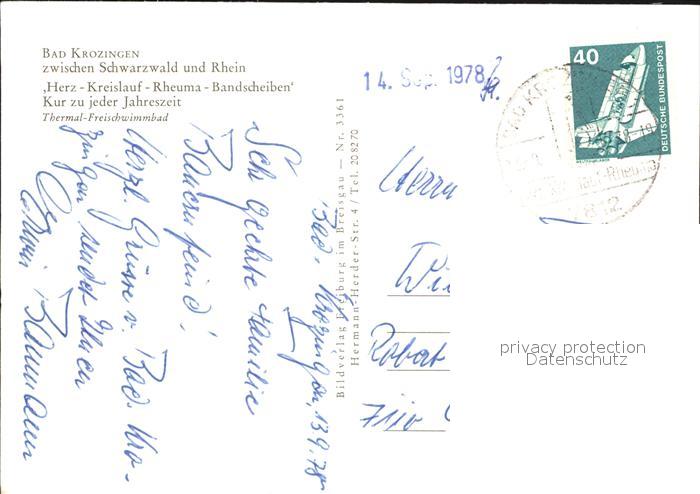 BAD KROZINGEN
zwischen Schwarzwald und Rhein
‚Herz - Kreislauf - Rheuma - Bandscheiben‘
Kur zu jeder Jahreszeit
Thermal-Freischwimmbad
14. Sep. 1978
40
DEUTSCHE BUNDESPOST
Bad. Krozingen, 13.9.78
Sehr geehrte Familie
Herzl. Grüsse v. Bad. Kro-
zingen sendet Ihnen
Bildverlag Freiburg im Breisgau — Nr. 3361
Hermann-Herder-Str. 4 / Tel. 208270
Herrn
Robert
privacy protection
Datenschutz